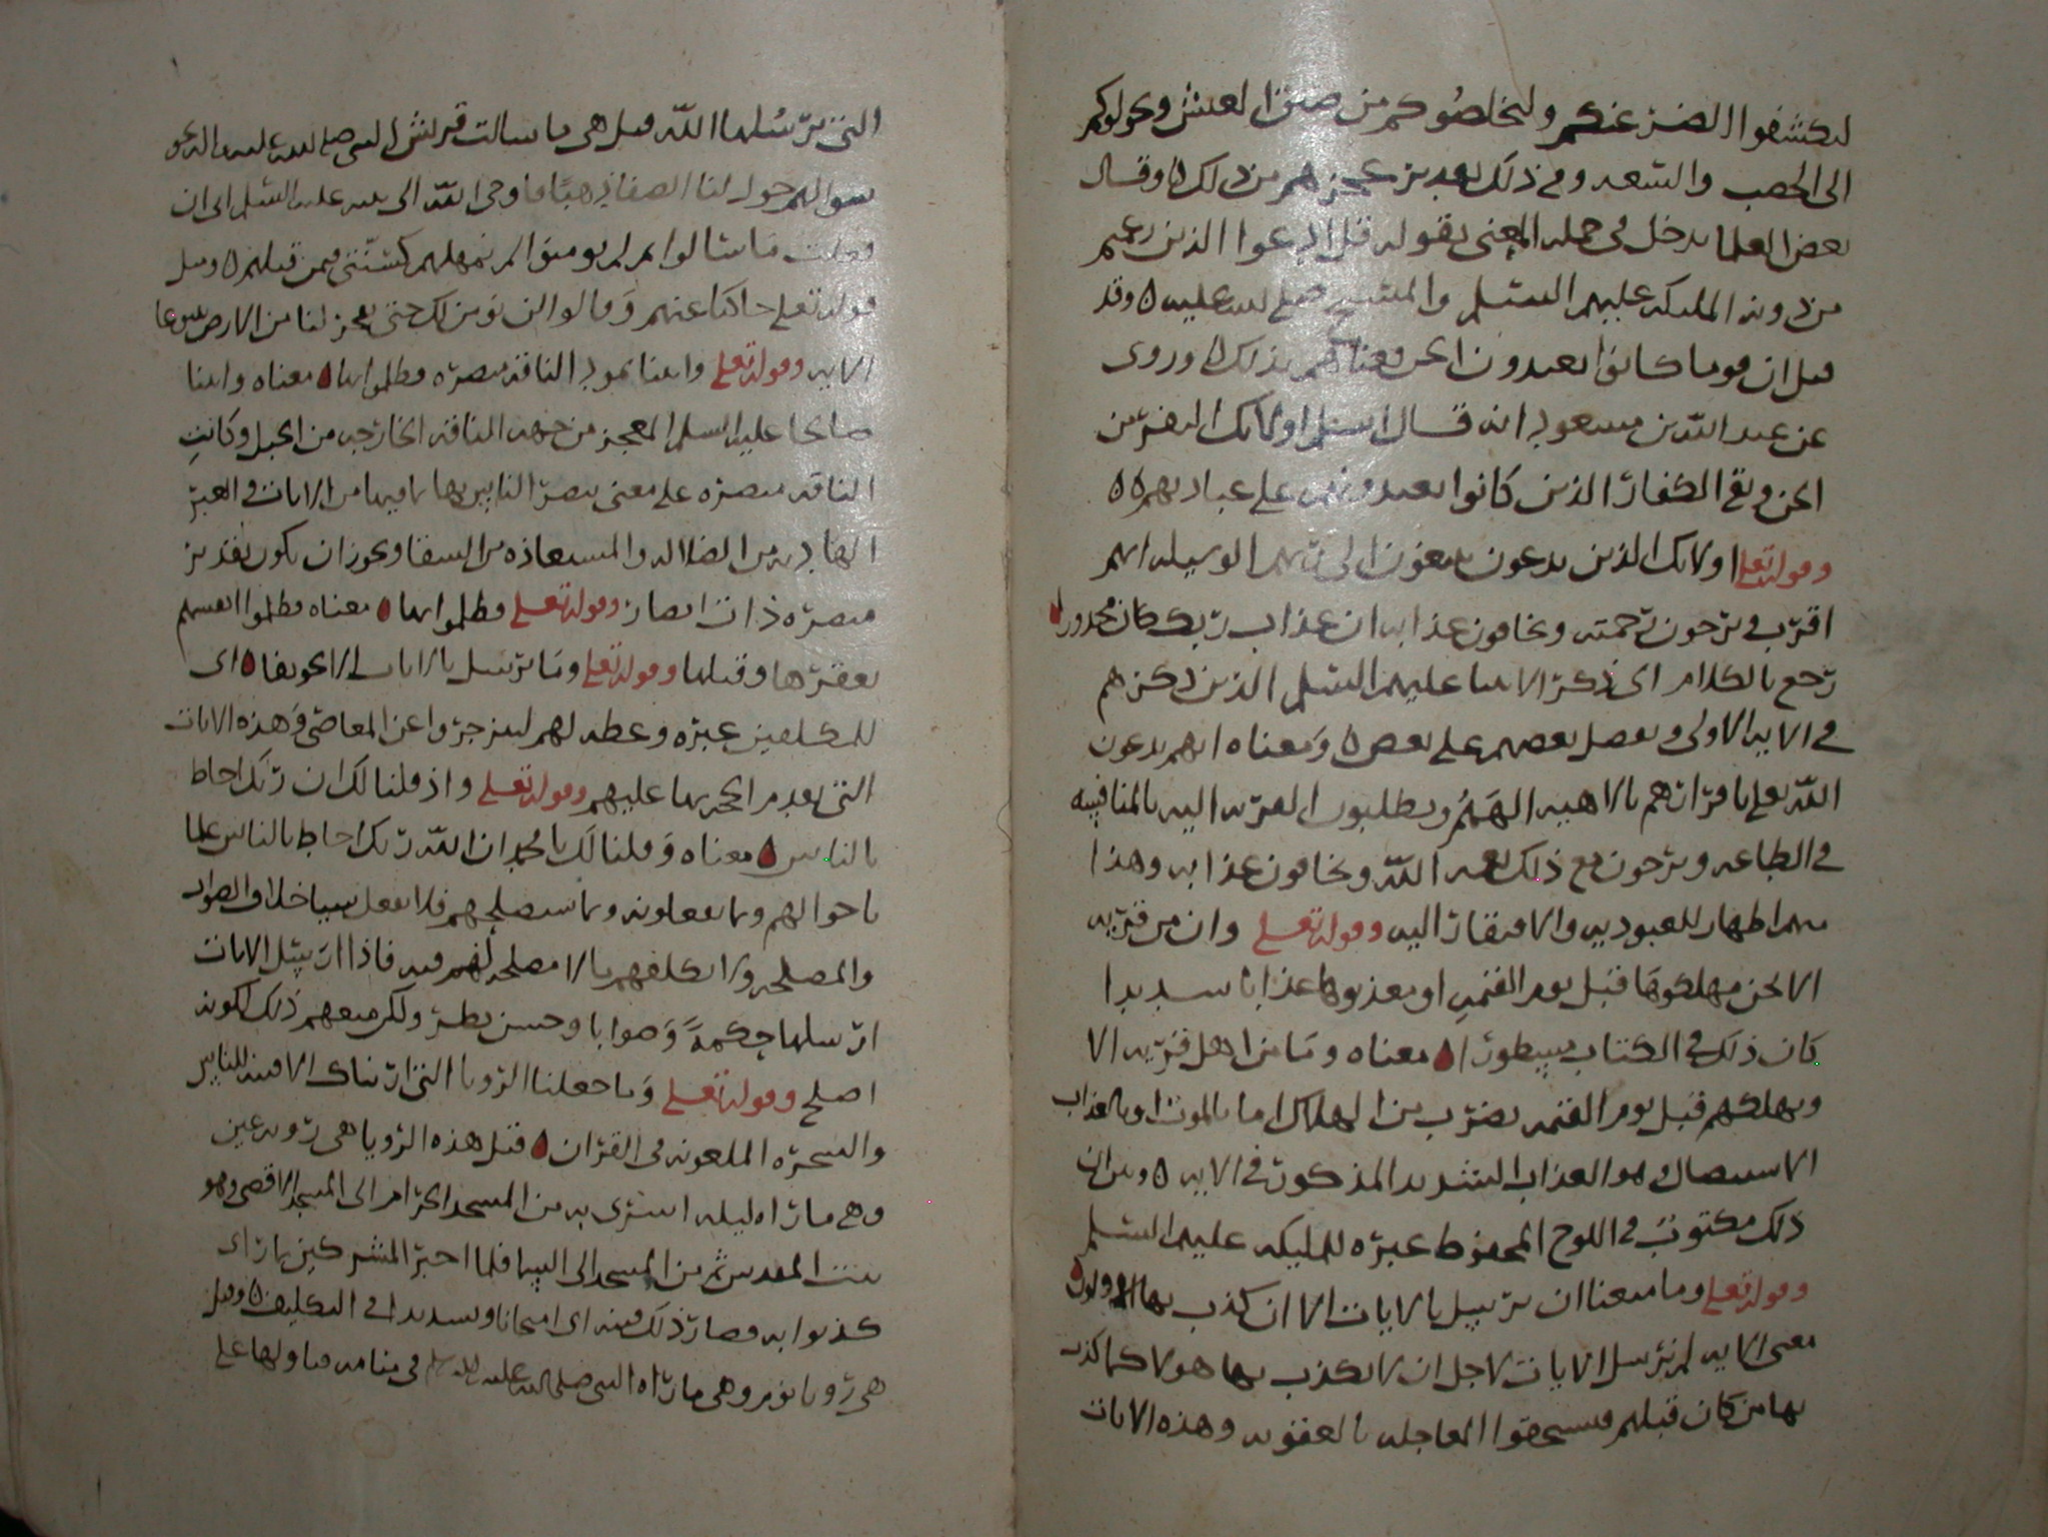 ليكشفوا الضر عنكم وليخلصوكم من ضيق العيش ويحولوكم
الى الخصب والسعه وفي ذلك تقدير عجزهم من ذلك ه وقال
بعض العلما يدخل في جمله المعنى بقوله قل ادعوا الذين زعمتم
من دونه الملىكه عليهم السلم والمسيح صلى الله عليه ه وقد
قيل ان قوما كانوا يعبدون الجن فعناهم بذلك ه وروى
عن عبد الله بن مسعود انه قال اسلم اولائك النفر من
الجن وبقي الكفار الذين كانوا يعبدونهم على عبادتهم ه ه
وقوله تعلى اولائك الذين يدعون يبتغون الى ربهم الوسيله ايهم
اقرب ويرجون رحمته ويخافون عذابه ان عذاب ربك كان محذورا
رجع بالكلام الى ذكر الانبيا عليهم السلم الذين ذكرهم
في الايه الاولى وبفضل بعضهم على بعض ه ومعناه انهم يدعون
الله تعلى باقرارهم بالاهيه الههم ويطلبون القربه اليه بالمنافسه
في الطاعه ويرجون مع ذلك نعمه الله ويخافون عذابه وهذا
منهم اظهار للعبوديه والافتقار اليه وقوله تعلى وان من قريه
الا نحن مهلكوها قبل يوم القيمه او معذبوها عذابا شديدا
كان ذلك في الكتاب مسطورا ه معناه وما من اهل قريه الا
ويهلكهم قبل يوم القيمه بضرب من الهلاك اما بالموت او بالعذاب
الاستيصال وهو العذاب الشديد المذكور في الايه ه وبين ان
ذلك مكتوب في اللوح المحفوظ عبره للمليكه عليهم السلم
وقوله تعلى وما منعنا ان نرسل بالايات الا ان كذب بها الاولون
معنى الايه لم نرسل الايات لاجل ان لا يكذب بها هولا كما كذب
بها من كان قبلهم فيستحقوا المعاجله بالعقوبه وهذه الايات
التي يرسلها الله قيل هي ما سالت قريش النبي صلى الله عليه واله نحو
سوالهم حول لنا الصفا ذهبا فاوحى الله الى نبيه عليه السلم الى ان
فعلت ما سالوا ثم لم يومنوا لم نمهلهم كسنتي فيمن قبلهم ه وقيل
قوله تعلى حاكيا عنهم وقالوا لن نومن لك حتى تفجر لنا من الارض ينبوعا
الايه وقوله تعلى واتينا ثمود الناقه مبصره فظلموا بها ه معناه واتينا
صالحا عليه السلم المعجز من جهه الناقه الخارجه من الجبل وكانت
الناقه مبصره على معنى تبصر الناس بها بما فيها من الايات والعبر
الهاديه من الضلاله والمستعاذه من الشقا ويجوز ان يكون تقدير
مبصره ذات ابصار وقوله تعلى فظلموا بها ه معناه فظلموا انفسهم
بعقرها وقتلها وقوله تعلى وما نرسل بالايات الا تخويفا ه اى
للمكلفين عبره وعظه لهم لينزجروا عن المعاصي وهذه الايات
التي تقدم الحجه بها عليهم وقوله تعلى واذ قلنا لك ان ربك احاط
بالناس ه معناه وقلنا لك يا محمد ان الله ربك احاط بالناس علما
باحوالهم وبما يفعلونه وبما يستصلحهم فلا يفعل شيا خلاف الصواب
والمصلحه ولا يكلفهم بالا مصلحه لهم فيه فاذا ارسل الايات
ارسلها حكمة وصوابا وحسن نظر ولكن منعهم ذلك لكونه
اصلح وقوله تعلى وما جعلنا الرويا التي اريناك الا فتنه للناس
والشجره الملعونه في القران ه قيل هذه الرويا هي رويه عين
وهي ما راه ليله اسرى به من المسجد الحرام الى المسجد الاقصى وهو
بيت المقدس ثم من المسجد الى السما فلما اخبر المشركين بما راى
كذبوا به فصار ذلك فتنه اى امتحانا وتشديدا في التكليف ه وقيل
هي رويا نوم وهي ما راه النبي صلى الله عليه وسلم في منامه